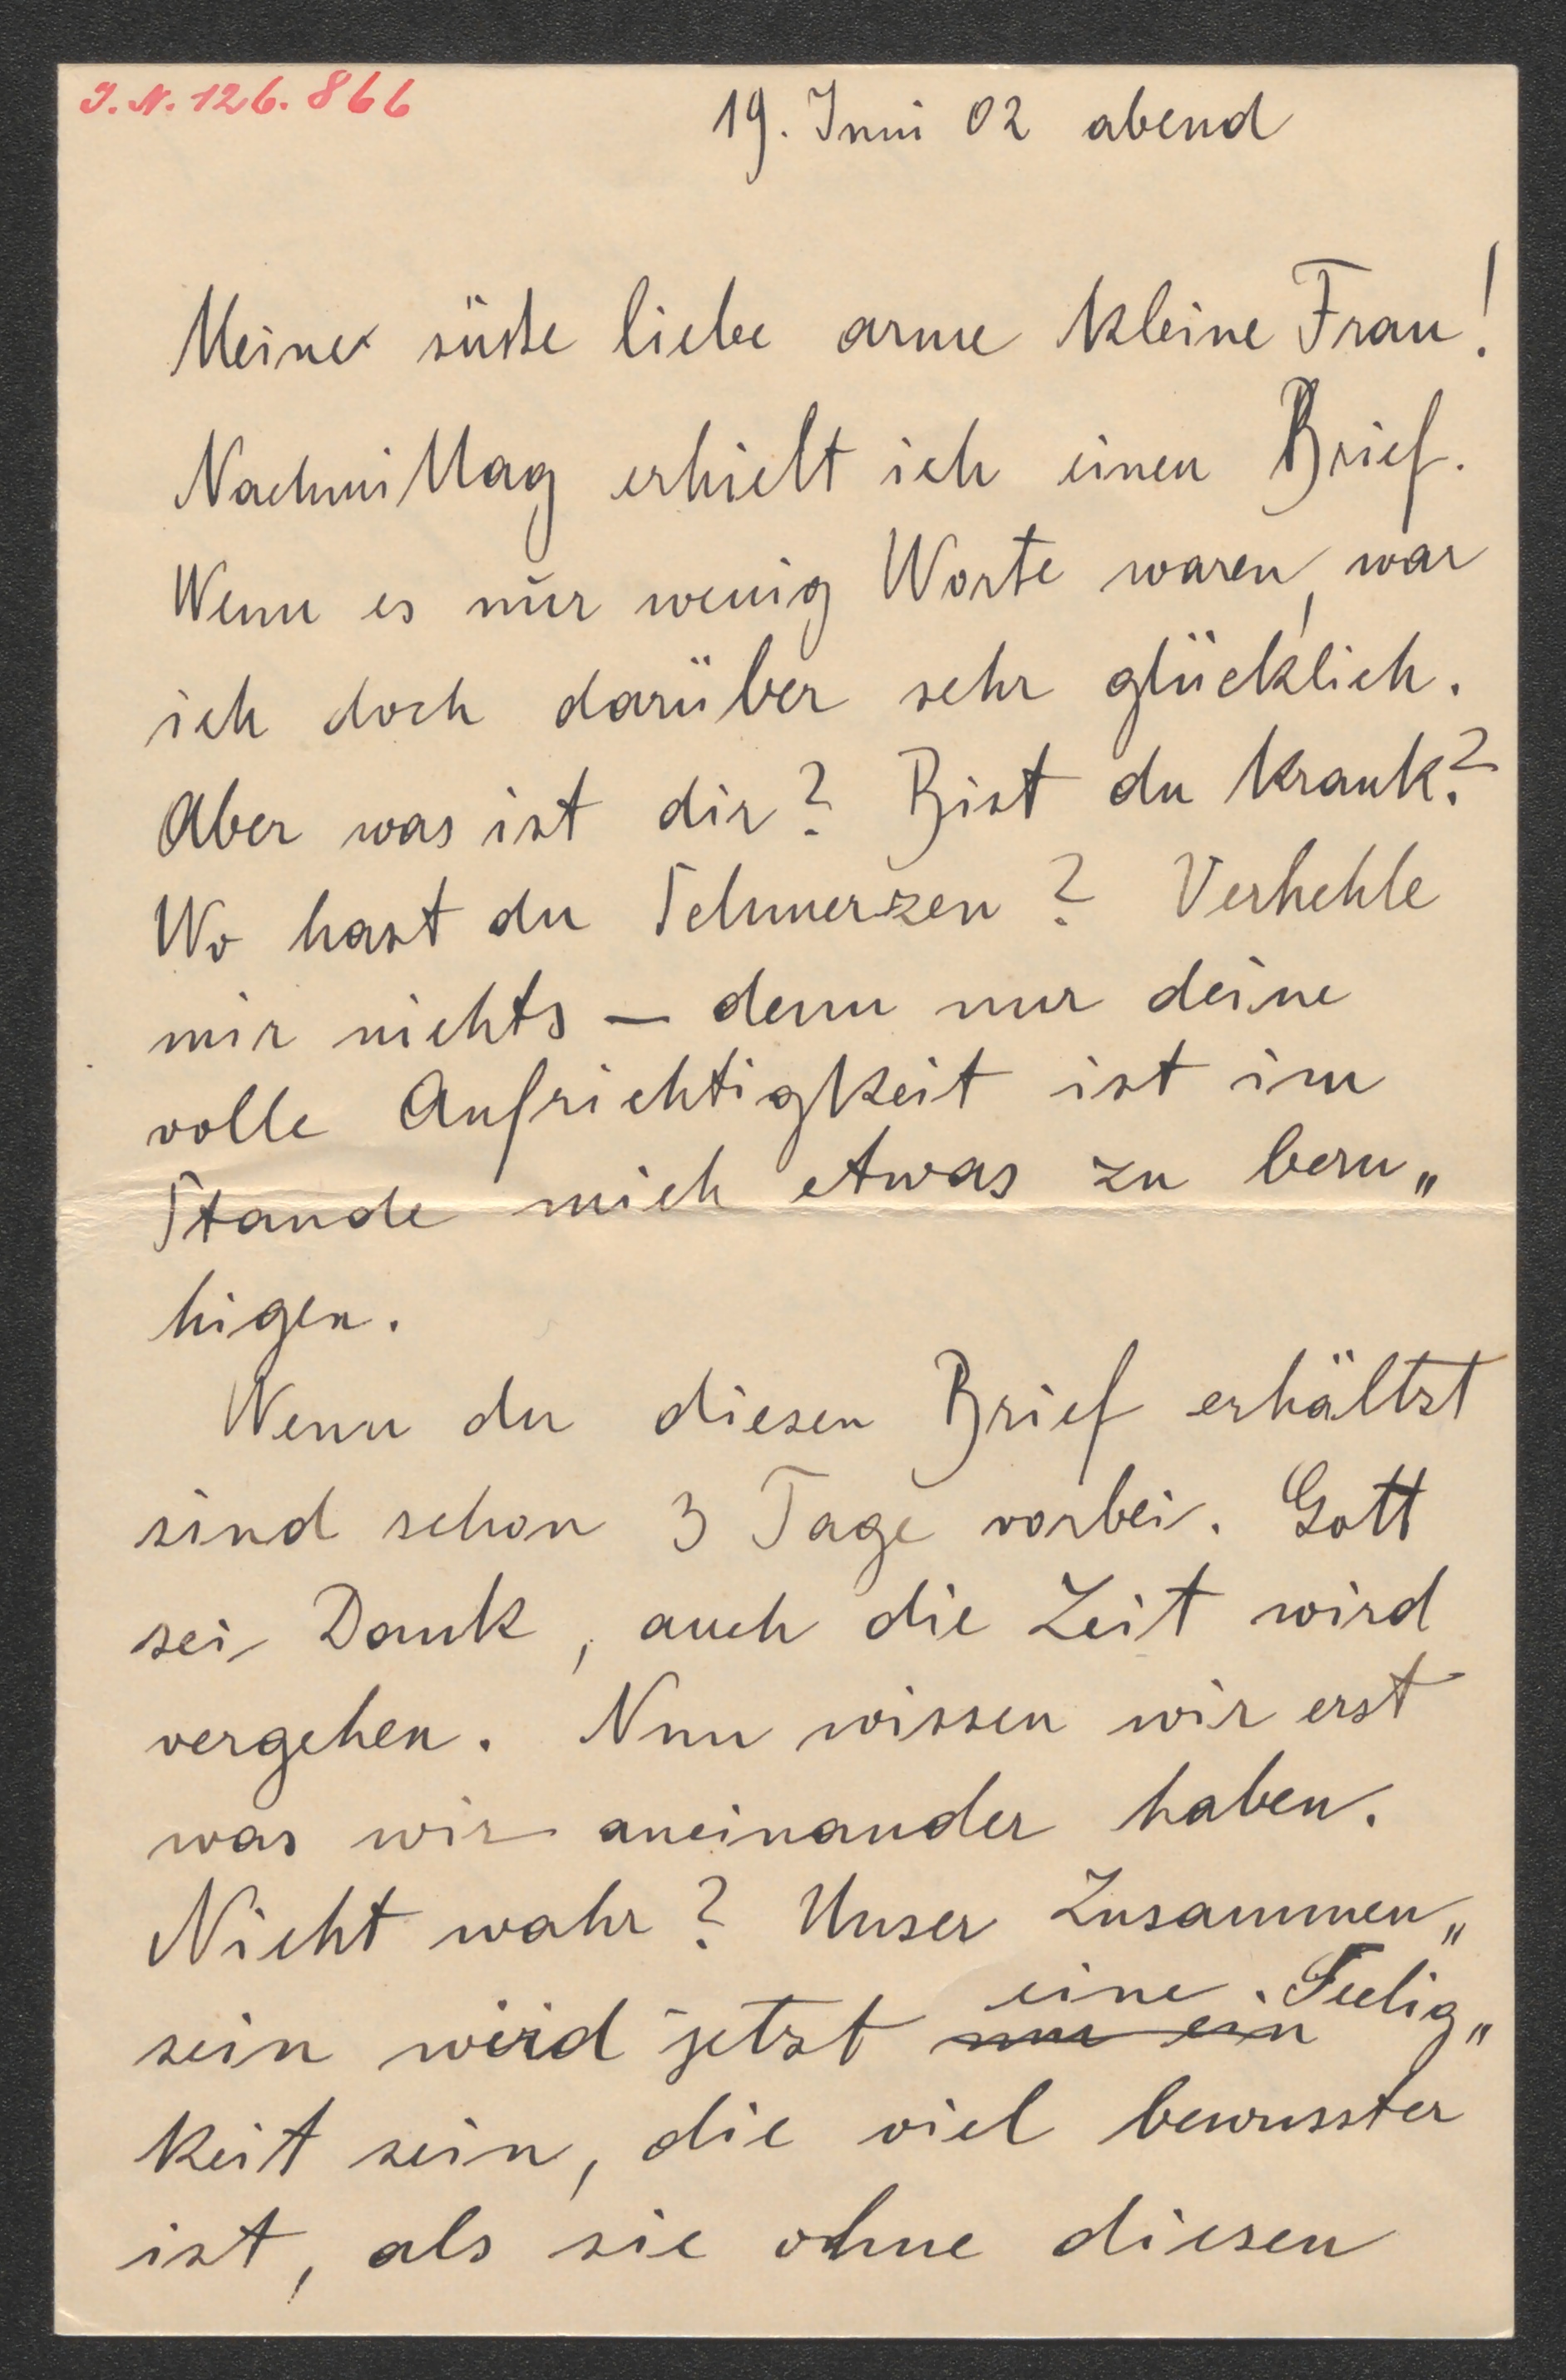 J.N. 126.866
19. Juni 02 abend
Meine süße liebe arme kleine Frau!
Nachmittag erhielt ich einen Brief.
Wenn es nur wenig Worte waren, war
ich doch darüber sehr glücklich.
Aber was ist dir? Bist du krank?
Wo hast du Schmerzen? Verhehle
mir nichts — denn nur deine
volle Aufrichtigkeit ist im
Stande mich etwas zu beru„
higen.
Wenn du diesen Brief erhältst
sind schon 3 Tage vorbei. Gott
sei Dank, auch die Zeit wird
vergehen. Nun wissen wir erst
was wir aneinander haben.
Nicht wahr? Unser Zusammen„
eine Seelig„
sein wird jetzt nur ein
keit sein, die viel bewusster
ist, als sie ohne diesen